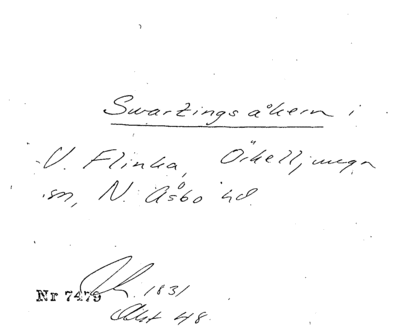 Swartzingsåkern i
V. Flinka, Örkelljunga
sn, N. Åsbo hd
Nr 7479 1831
Akt 48